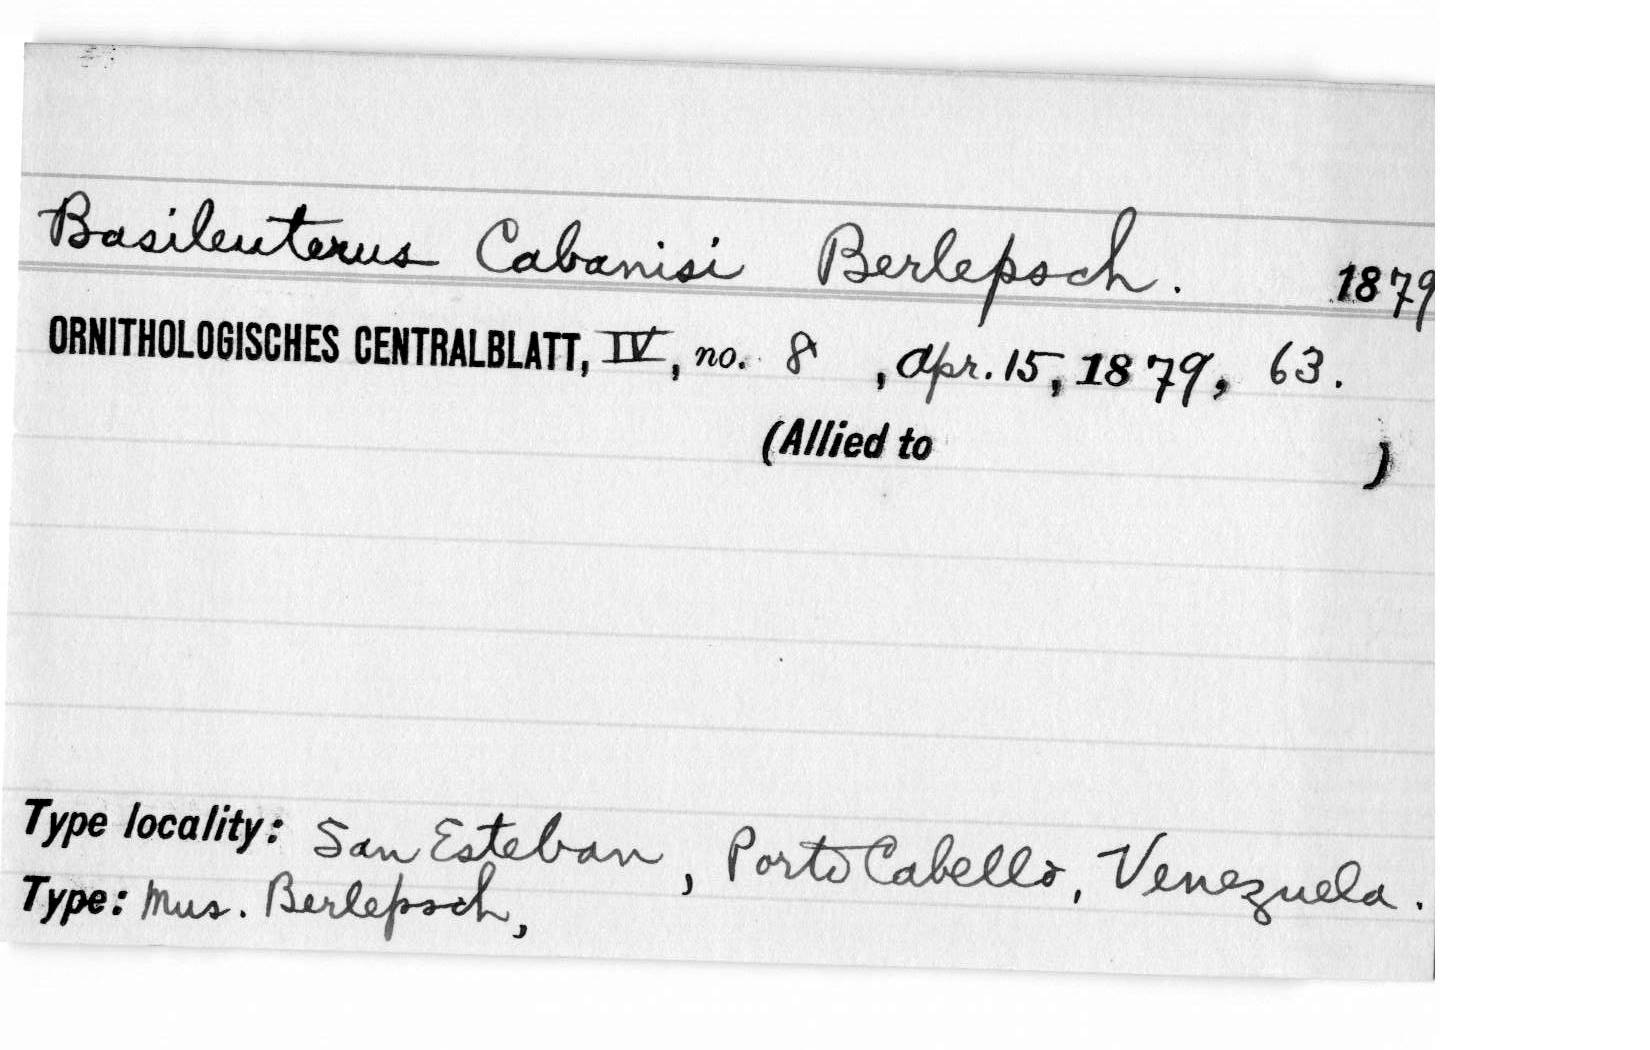 Basileuterus Cabanisi Berlepsch. 1879
ORNITHOLOGISCHES CENTRALBLATT, IV, no. 8, Apr. 15, 1879, 63.
(Allied to )
Type locality: San Esteban, Porto Cabello, Venezuela.
Type: Mus. Berlepsch,